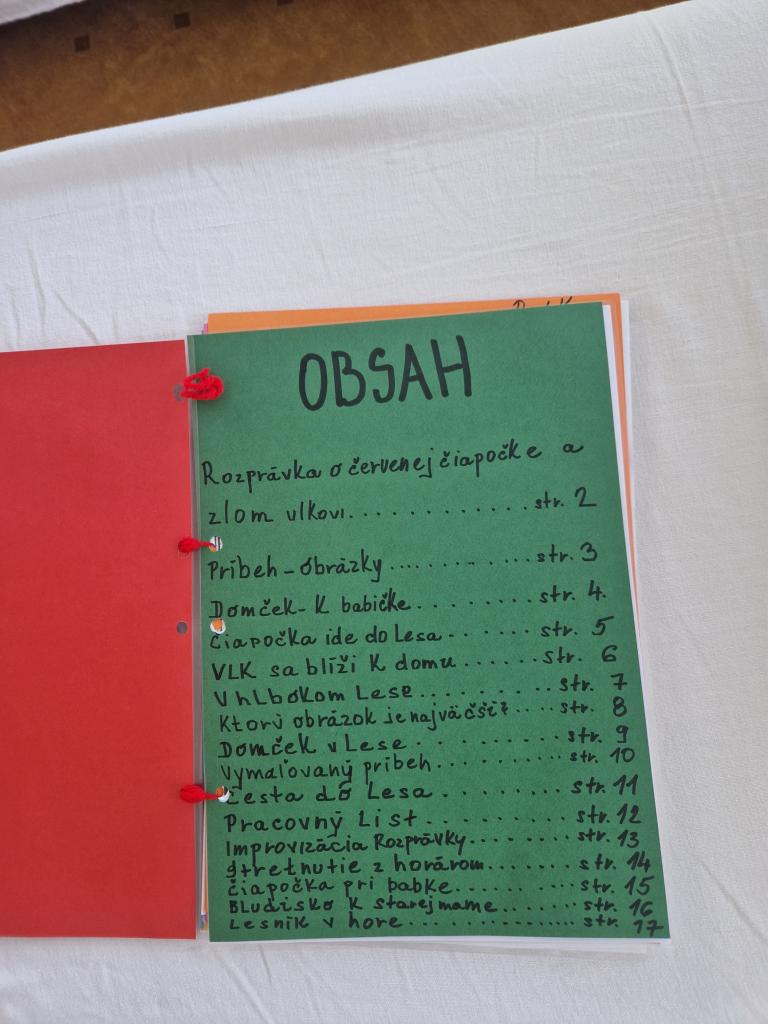 OBSAH
Rozprávka o červenej čiapočke a
zlom vlkovi............str. 2
Príbeh-obrázky............str. 3
Domček-K babičke..........str. 4.
čiapočka ide do Lesa.......str. 5
VLK sa blíži K domu.......str. 6
V hlbokom Lese..........str. 7
Ktorý obrázok je najväčší?....str. 8
Domček v Lese..........str. 9
Vymaľovaný príbeh..........str. 10
Cesta do Lesa..........str. 11
Pracovný List..........str. 12
Improvizácia Rozprávky..........str. 13
stretnutie z horárom..........str. 14
čiapočka pri babke..........str. 15
BLudisko K starej mame..........str. 16
Lesník v hore..................str. 17